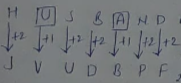 H U S B A N D
+2 +1 +2 +2 +1 +2 +2
J V U D B P F